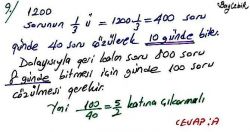 9) 1200
sorunun 1/3 ü = 1200·1/3 = 400 soru
günde 40 soru çözülerek 10 günde biter.
Dolayısıyla geri kalan soru 800 soru
8 günde bitmesi için günde 100 soru
çözülmesi gerekir.
Yani 100/40 = 5/2 katına çıkarmalı
CEVAP: A